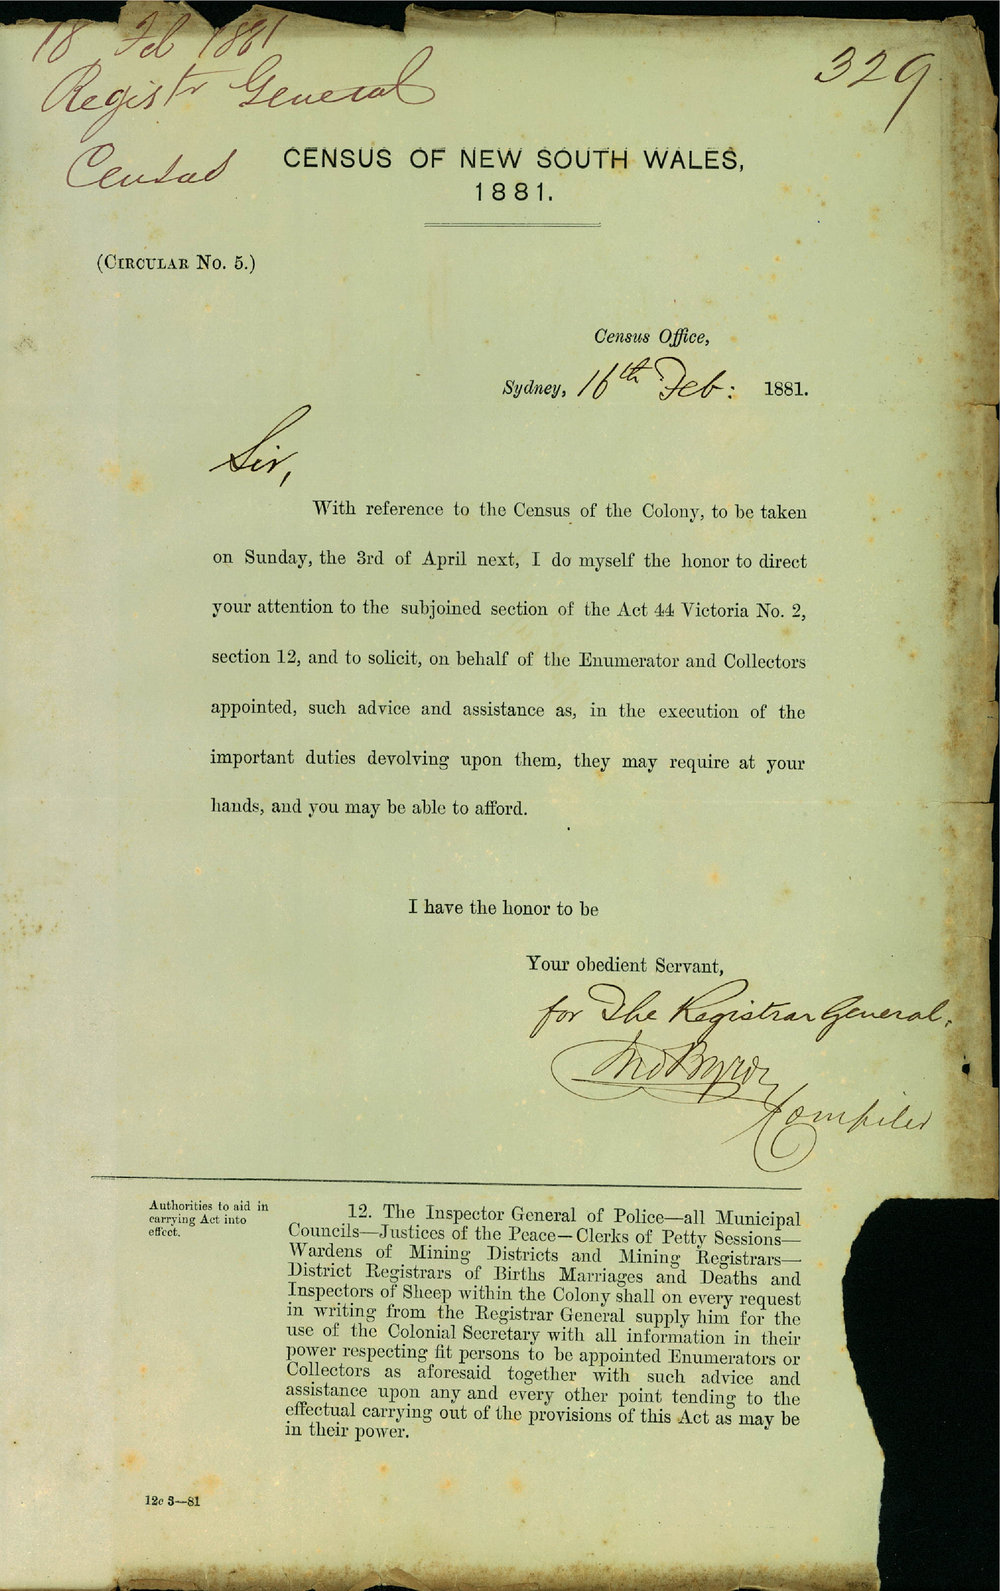 18 Feb 1881
Registr General
Census
329
CENSUS OF NEW SOUTH WALES,
1881.
(CIRCULAR No. 5.)
Census Office,
Sydney, 16th Feb: 1881.
Sir,
With reference to the Census of the Colony, to be taken
on Sunday, the 3rd of April next, I do myself the honor to direct
your attention to the subjoined section of the Act 44 Victoria No. 2,
section 12, and to solicit, on behalf of the Enumerator and Collectors
appointed, such advice and assistance as, in the execution of the
important duties devolving upon them, they may require at your
hands, and you may be able to afford.
I have the honor to be
Your obedient Servant,
for The Registrar General.
Compiler
Authorities to aid in
carrying Act into
effect.
12. The Inspector General of Police—all Municipal
Councils—Justices of the Peace—Clerks of Petty Sessions—
Wardens of Mining Districts and Mining Registrars—
District Registrars of Births Marriages and Deaths and
Inspectors of Sheep within the Colony shall on every request
in writing from the Registrar General supply him for the
use of the Colonial Secretary with all information in their
power respecting fit persons to be appointed Enumerators or
Collectors as aforesaid together with such advice and
assistance upon any and every other point tending to the
effectual carrying out of the provisions of this Act as may be
in their power.
12c 3—81